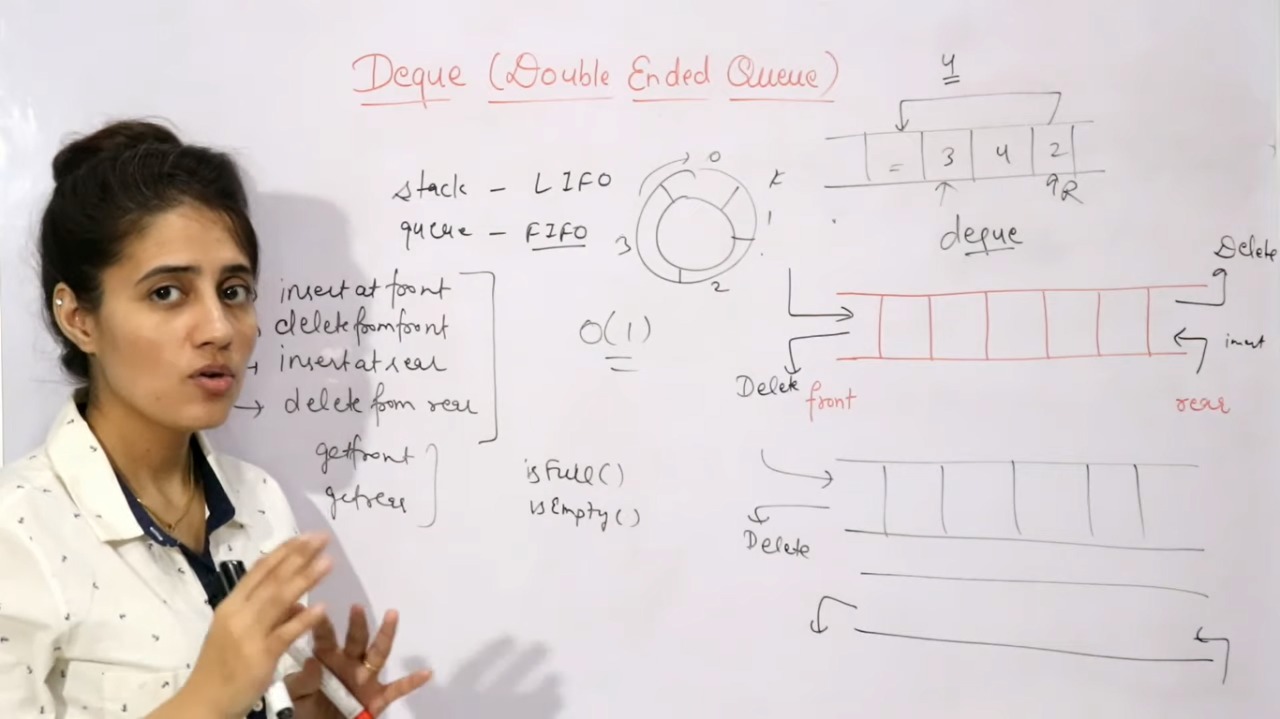 Deque (Double Ended Queue)
stack - LIFO
queue - FIFO
insert at front
delete from front
insert at rear
→ delete from rear
getfront
getrear
O(1)
isFull()
isEmpty()
0
1
2
3
4
= 3 4 2
R
deque
Delete
insert
Delete
front
rear
Delete